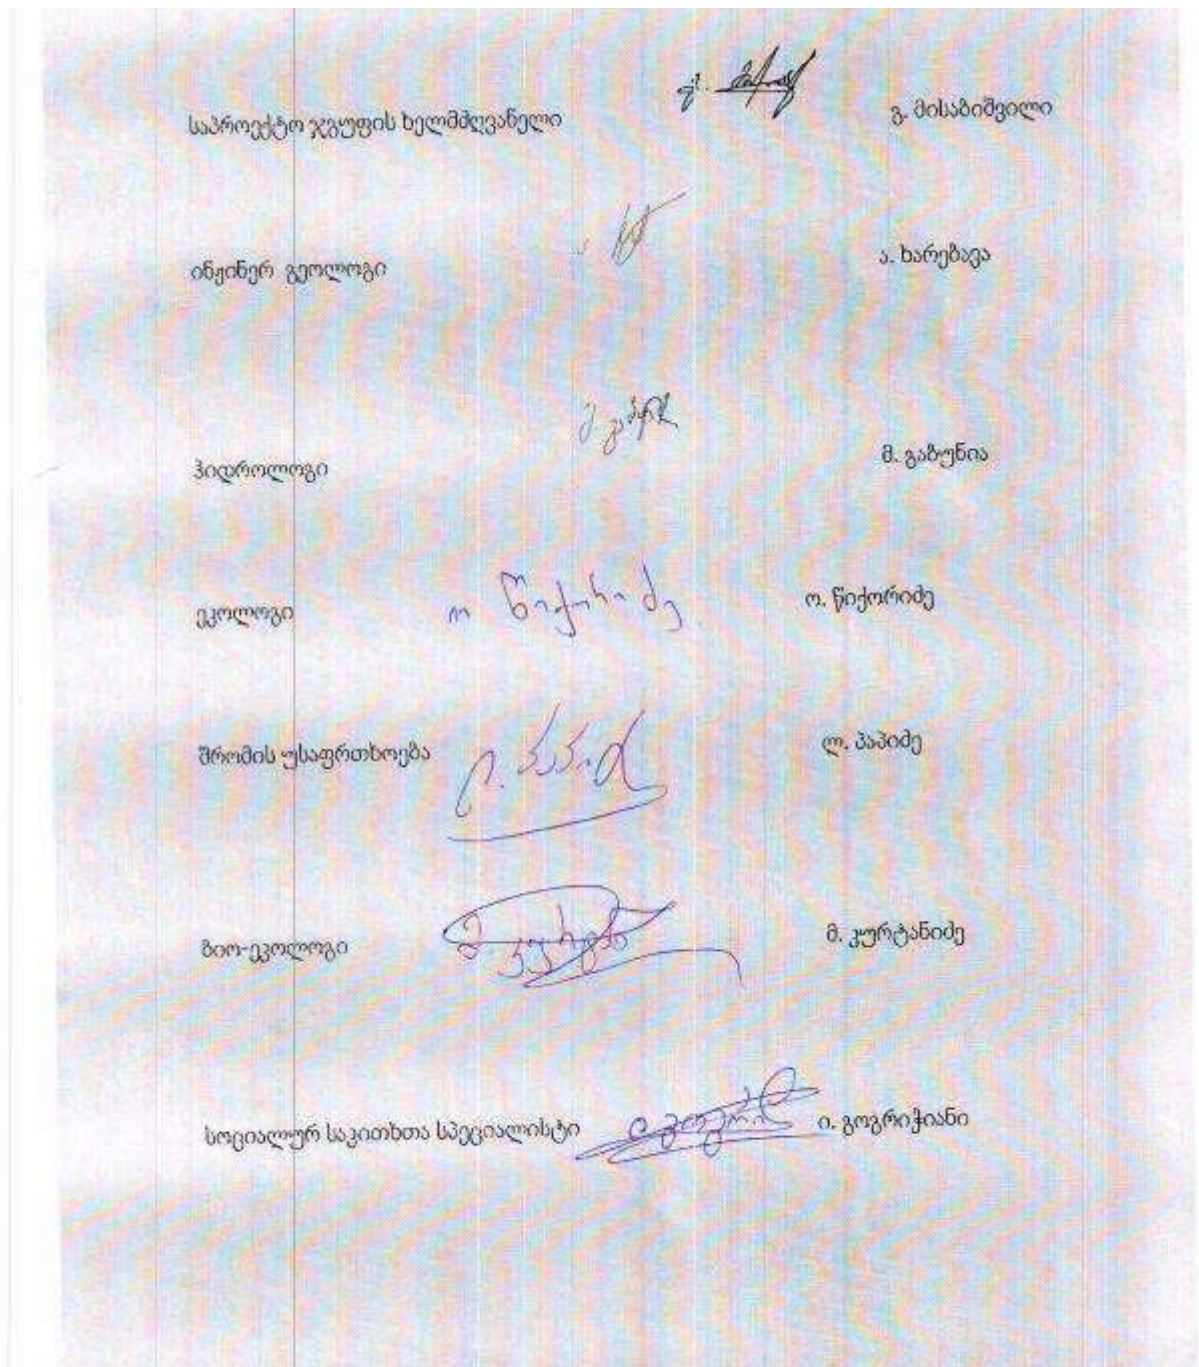 საპროექტო ჯგუფის ხელმძღვანელი გ. მისაბიშვილი
ინჟინერ გეოლოგი ა. ხარებავა
ჰიდროლოგი მ. გაბუნია
ეკოლოგი ო წიქორიძე ო. წიქორიძე
შრომის უსაფრთხოება ლ. პაპიძე
ბიო-ეკოლოგი მ. კურტანიძე
სოციალურ საკითხთა სპეციალისტი ი. გოგრიჭიანი